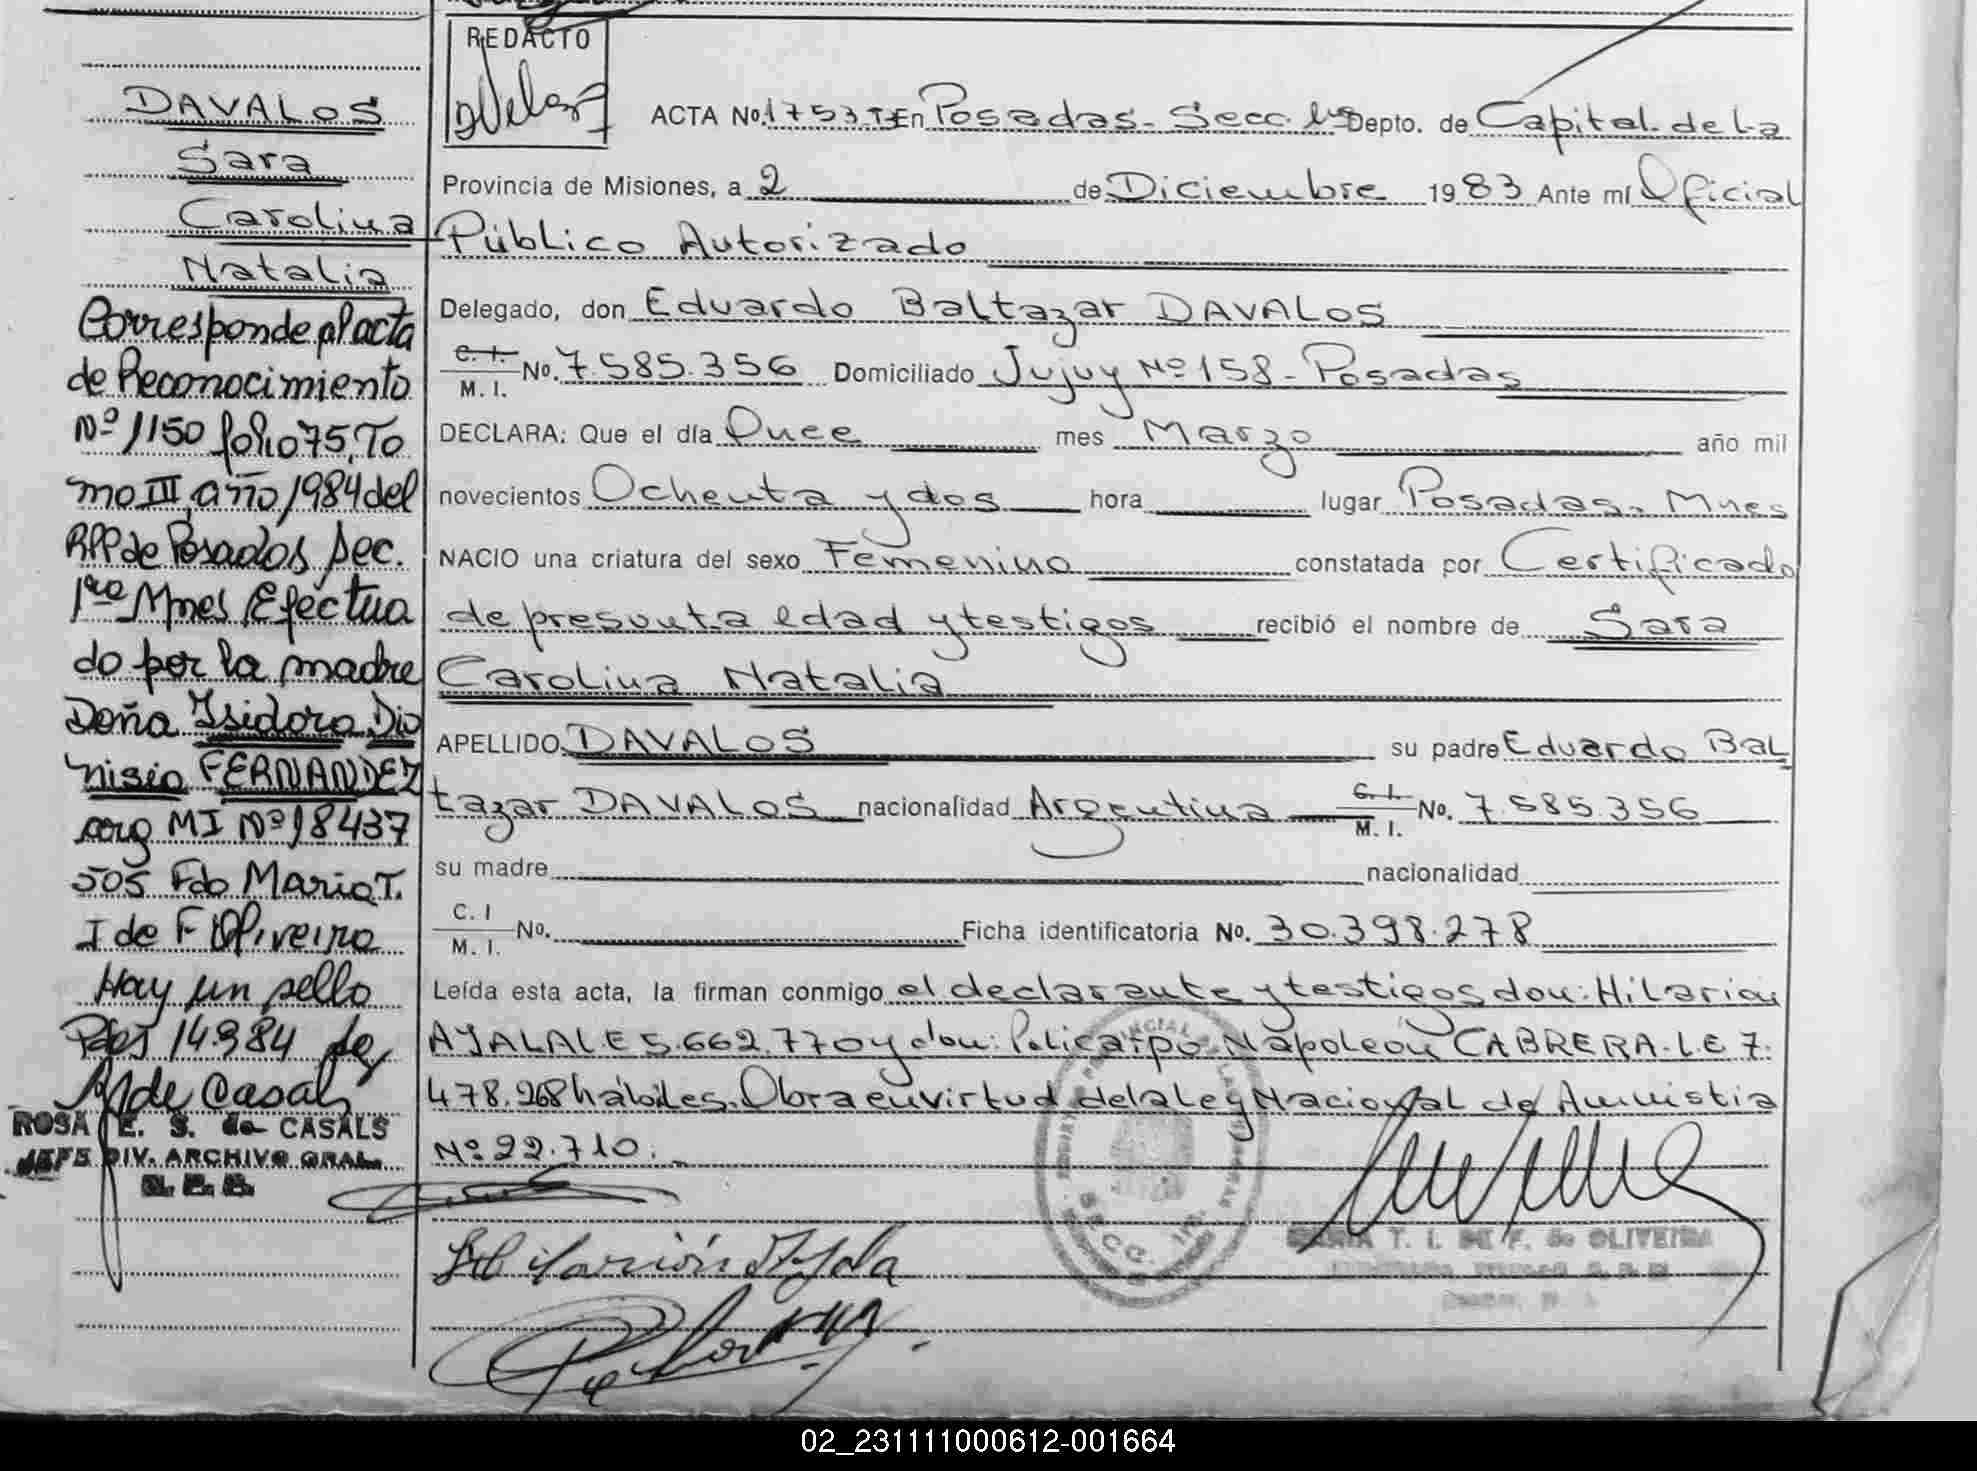 DAVALOS
Sara
Carolina
Natalia
Corresponde al acta
de Reconocimiento
Nº 1150 folio 75, To
mo III, año 1984 del
RPP de Posadas Sec.
1ra Mnes Efectua
do por la madre
Doña Isidora Dio
nisia FERNANDEZ
arg MI Nº 18437
505 Fdo Maria T.
I de F Oliveira
Hay un sello
Pdas 14.9.84
de Casals
ROSA E. S. de CASALS
JEFE DIV. ARCHIVO GRAL.
REDACTO
ACTA No. 1753 En Posadas. Secc. 1ra Depto. de Capital de la
Provincia de Misiones, a 2 de Diciembre 1983 Ante mí Oficial
Público Autorizado
Delegado, don Eduardo Baltazar DAVALOS
C. I. M. I. No. 7.585.356 Domiciliado Jujuy Nº 158 - Posadas
DECLARA: Que el día Once mes Marzo año mil
novecientos Ochenta y dos hora lugar Posadas, Mnes
NACIO una criatura del sexo Femenino constatada por Certificado
de presunta edad y testigos recibió el nombre de Sara
Carolina Natalia
APELLIDO DAVALOS su padre Eduardo Bal
tazar DAVALOS nacionalidad Argentina C. I. M. I. No. 7.585.356
su madre nacionalidad
C. I M. I. No. Ficha identificatoria No. 30.398.278
Leída esta acta, la firman conmigo el declarante y testigos don: Hilarion
AYALA L E 5.662.770 y don: Policarpo Napoleón CABRERA. L.E 7.
478.268 hábiles. Obra en virtud de la Ley Nacional de Amnistia
Nº 22.710.
Hilarión Ayala
MARIA T. I. DE F. de OLIVEIRA
02_231111000612-001664